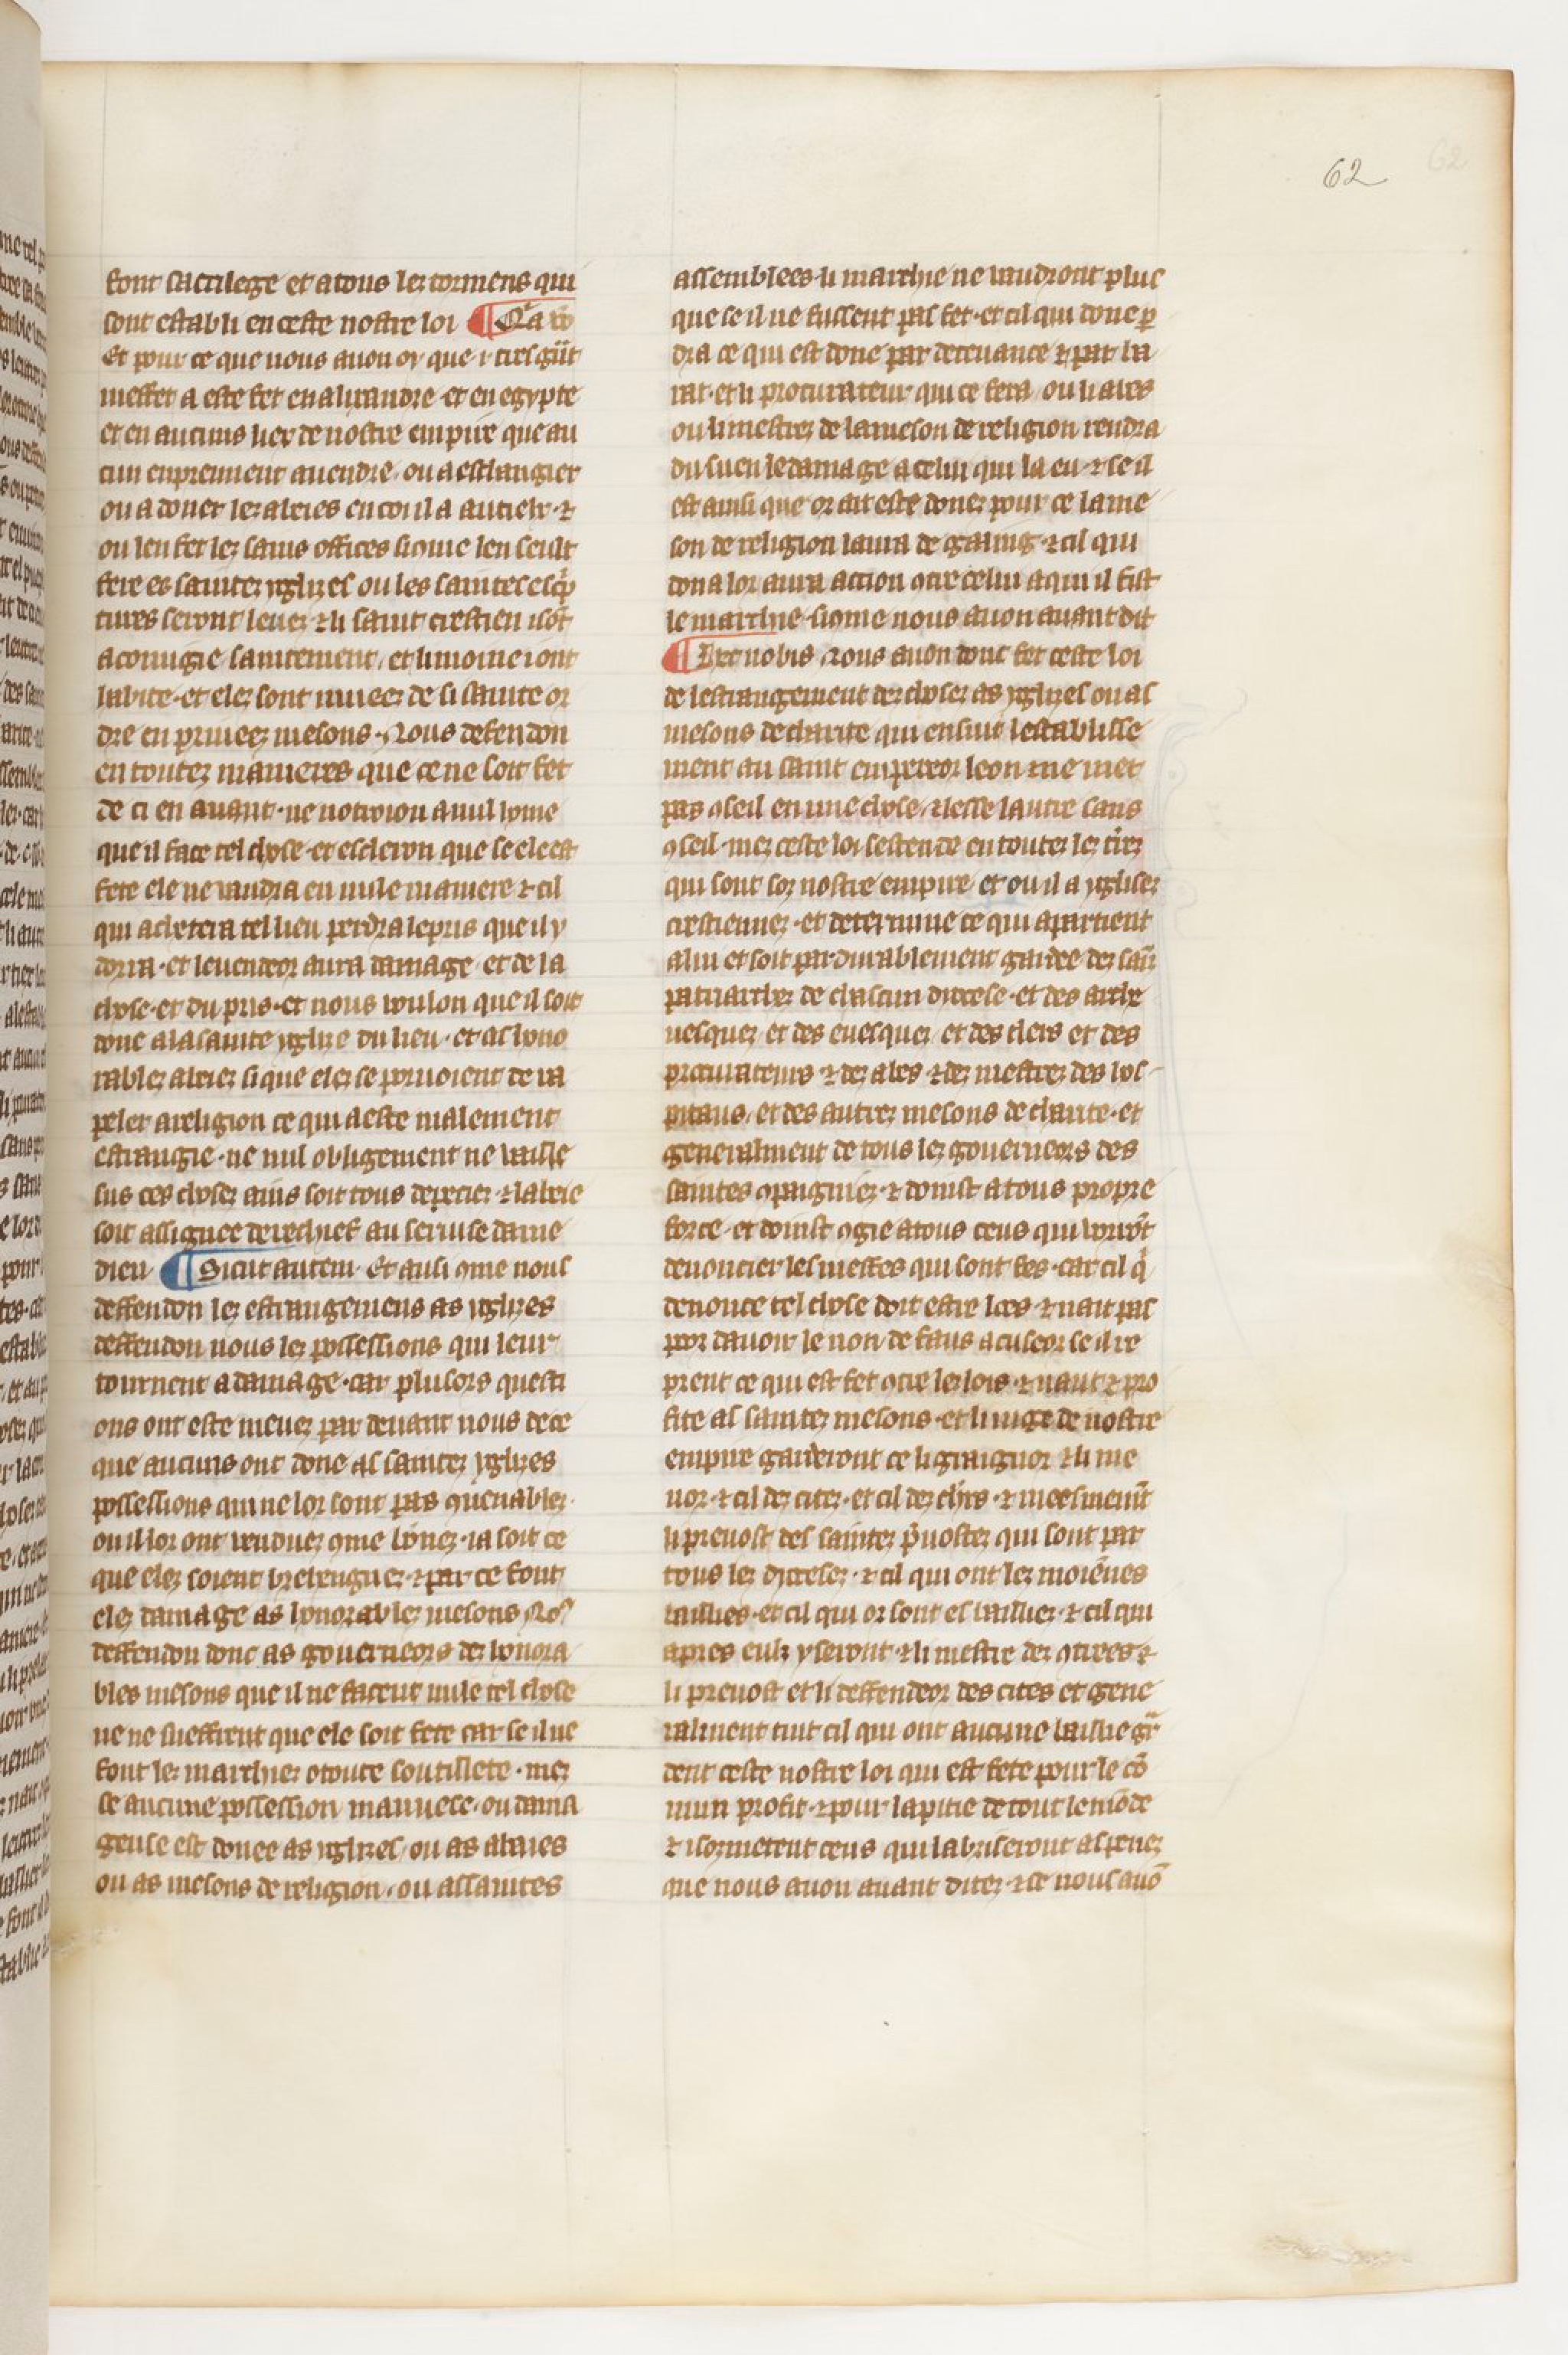 62
font sacrilege et a tous lez tormens qui
sont establi en ceste nostre loi ¶ Qa vo
Et pour ce que nous auon oy que .i. tresgnt
meffet a este fet en alixandre et en egypte
et en aucuns liex de nostre empire que au
cun enprennent a uendre. ou a estrangier
ou a doner lez abeies en coi il a autiex. ⁊
ou len fet lez sains offices si ome len seult
fere es saintez yglizes ou les saintes escp
tures seront leuez ⁊ li saint crestien i sot
acomigie saintement. et li moine i ont
abite. et elez sont muees de si sainte or
dre en priueez mesons. Nous defendon
en toutez manieres que ce ne soit fet
de ci en auant. ne notroion a nul home
que il face tel chose. et escleiron que se ele est
fete ele ne vaudra en nule maniere ⁊ cil
qui achetera tel lieu perdra le pris que il y
dorra. et le uendeor aura damage et de la
chose. et du pris. et nous voulon que il soit
done a la sainte yglize du lieu. et as hono
rablez abeiez si que elez se poruoient de ra
peler a religion ce qui a este malement
estrangie. ne nul obligement ne vaille
sus ces chosez ains soit tous depeciez ⁊ labeie
soit assignee derechief au seruise dame
dieu ¶ Sicut autem. Et ausi ome nous
deffendon lez estrangemens as yglizes
deffendon nous lez possessions qui leur
tournent a damage. car plusors questi
ons ont este meuez par deuant nous de ce
que aucuns ont done as saintez yglizes
possessions qui ne lor sont pas ouenablez.
ou il lor ont vendues ome bonez. ia soit ce
que elez soient brehengnez. ⁊ par ce font
elez damage as honorablez mesons No9
deffendon donc as gouerneors dez honora
bles mesons que il ne facent nule tel chose
ne ne sueffrent que ele soit fete car se il ne
font lez marchiez o toute soutillete. mez
se aucune possession mauuese. ou dama
geuse est donee as yglizes. ou as abaies
ou as mesons de religion. ou as saintes
assemblees. li marchie ne vaudront plus
que se il ne fussent pas fet. et cil qui done p
dra ce qui est done par deceuance ⁊ par ba
rat. et li procurateur qui ce fera. ou li abes
ou li mestrez de la meson de religion rendra
du suen le damage a celui qui la eu. ⁊ se il
est ainsi que or ait este donez pour ce la me
son de religion laura de gaaing. ⁊ cil qui
dona lor aura action otre celui a qui il fist
le marchie. si ome nous auon auant dit
¶ Jgr nobis Nous auon donc fet ceste loi
de lestrangement dez chosez as yglizes ou as
mesons de charite qui ensiut lestablisse
ment au saint empereor leon. ⁊ ne met
pas oseil en une chose. ⁊ lesse lautre sans
oseil. mez ceste loi sestende en toutez lez trez
qui sont soz nostre empire et ou il a yglisez
crestiennez. et determine ce qui apartient
a lui et soit pardurablement gardee dez sais
patriarchez de chascun diocese. et des arche
uesquez et des euesquez et des clers et des
procurateurs ⁊ dez abes ⁊ dez mestrez des hos
pitaus. et des autrez mesons de charite. et
generalment de tous lez gouerneors des
saintes opaigniez. ⁊ doinst a tous propre
force. et doinst ogie a tous ceus qui vorrot
denoncier les meffes qui sont fes. car cil q
denonce tel chose doit estre loes. ⁊ nait pas
poor dauoir le non de faus acuseor se il re
prent ce qui est fet otre lez lois. ⁊ vaut ⁊ pro
fite as saintez mesons. et li iuge de nostre
empire garderont ce li graignor ⁊ li me
nor. ⁊ cil dez citez. et cil dez chrs. ⁊ meesment
li preuost des saintez puostez qui sont par
tous lez diocesez. ⁊ cil qui ont lez moienes
baillies. et cil qui or sont es bailliez. ⁊ cil qui
apres eulz y seront. ⁊ li mestre dez otrees ⁊
li preuost et li deffendeor des cites et gene
ralment tuit cil qui ont aucune baillie gr
dent ceste nostre loi qui est fete pour le co
mun profit. ⁊ pour la pitie de tout le mode
⁊ i sozmetent ceus qui la briseront as penez
que nous auon auant ditez. ⁊ ce nous auo